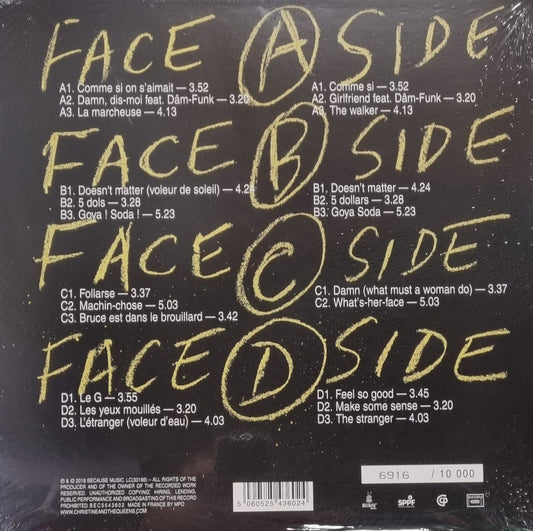 FACE A SIDE
A1. Comme si on s'aimait — 3.52
A2. Damn, dis-moi feat. Dâm-Funk — 3.20
A3. La marcheuse — 4.13
A1. Comme si — 3.52
A2. Girlfriend feat. Dâm-Funk — 3.20
A3. The walker — 4.13
FACE B SIDE
B1. Doesn't matter (voleur de soleil) — 4.26
B2. 5 dols — 3.28
B3. Goya ! Soda ! — 5.23
B1. Doesn't matter — 4.24
B2. 5 dollars — 3.28
B3. Goya Soda — 5.23
FACE C SIDE
C1. Follarse — 3.37
C2. Machin-chose — 5.03
C3. Bruce est dans le brouillard — 3.42
C1. Damn (what must a woman do) — 3.37
C2. What's-her-face — 5.03
FACE D SIDE
D1. Le G — 3.55
D2. Les yeux mouillés — 3.20
D3. L'étranger (voleur d'eau) — 4.03
D1. Feel so good — 3.45
D2. Make some sense — 3.20
D3. The stranger — 4.03
℗ & © 2018 BECAUSE MUSIC. LC(33186) – ALL RIGHTS OF THE
PRODUCER AND OF THE OWNER OF THE RECORDED WORK
RESERVED. UNAUTHORIZED COPYING, HIRING, LENDING,
PUBLIC PERFORMANCE AND BROADCASTING OF THIS RECORD
PROHIBITED BEC5543602 MADE IN FRANCE BY MPO
WWW.CHRISTINEANDTHEQUEENS.COM
5 060525 436024
6916 / 10 000
SPPF